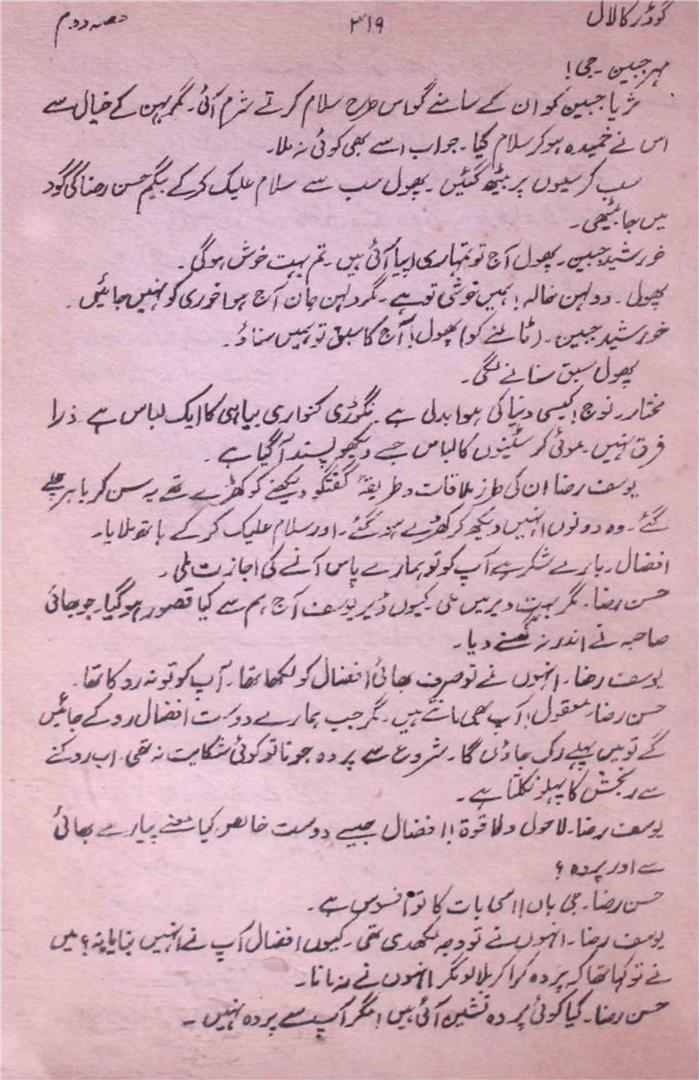 گوڈر کا لال ۳۱۹ حصہ دوم
مہر جبین۔ جی!
ثریا جبین کو ان کے سامنے گو اس طرح سلام کرتے شرم آئی۔ مگر بہن کے خیال سے
اس نے خمیدہ ہو کر سلام کیا۔ جواب اسے بھی کوئی نہ ملا۔
سب کرسیوں پر بیٹھ گئیں۔ پھول سب سے سلام علیک کر کے بیگم حسن رضا کی گود
میں جا بیٹھی۔
خورشید جبین۔ پھول آج تو تمہاری اپیا آئی ہیں۔ تم بہت خوش ہو گی۔
پھول۔ دولہن خالہ! ہمیں خوشی تو ہے۔ مگر دلہن جان آج ہوا خوری کو نہیں جائیں۔
خورشید جبین۔ (ٹالنے کو) پھول! آج کا سبق تو ہمیں سناؤ۔
پھول سبق سنانے لگی۔
مختار۔ نوج! کیسی دنیا کی ہوا بدلی ہے۔ نگوڑی کنواری بیاہی کا ایک لباس ہے ذرا
فرق نہیں۔ موئی کرسٹینوں کا لباس جسے دیکھو پسند آ گیا ہے۔
یوسف رضا ان کی طرز ملاقات و طریقۂ گفتگو دیکھنے کو کھڑے تھے یہ سن کر باہر چلے
گئے۔ وہ دونوں انہیں دیکھ کر کھڑے ہو گئے۔ اور سلام علیک کر کے ہاتھ ملایا۔
افضال۔ بارے شکر ہے آپ کو تو ہمارے پاس آنے کی اجازت ملی۔
حسن رضا۔ مگر بہت دیر میں ملی۔ کیوں ڈیر یوسف آج ہم سے کیا قصور ہو گیا۔ جو بھائی
صاحبہ نے اندر نہ گھسنے دیا۔
یوسف رضا۔ انہوں نے تو صرف بھائی افضال کو لکھا تھا۔ آپ کو تو نہ روکا تھا۔
حسن رضا۔ معقول! آپ بھی مانتے ہیں۔ مگر جب ہمارے دوست افضال روکے جائیں
گے تو میں پہلے رک جاؤں گا۔ شروع سے پردہ ہوتا تو کوئی شکایت نہ تھی۔ اب روکنے
سے رنجش کا پہلو نکلتا ہے۔
یوسف رضا۔ لاحول ولا قوۃ! افضال جیسے دوست خالص کیا معنے پیارے بھائی
سے اور پردہ؟
حسن رضا۔ جی ہاں! اسی بات کا تو افسوس ہے۔
یوسف رضا۔ انہوں نے تو وجہ لکھدی تھی۔ کیوں افضال آپ نے انہیں بتایا نہ؟ میں
نے تو کہا تھا کہ پردہ کرا کر بلا لو مگر انہوں نے نہ مانا۔
حسن رضا۔ کیا کوئی پردہ نشین آئی ہیں! مگر آپ سے پردہ نہیں۔